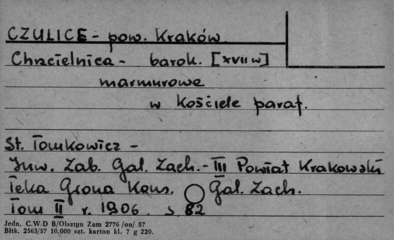 CZULICE - pow. Kraków
Chrzcielnica - barok. [XVII w]
marmurowe
w kościele paraf.
St. Tomkowicz -
Inw. Zab. Gal. Zach. - III Powiat Krakowski
Teka Grona Kons. Gal. Zach.
Tom II r. 1906 s 82
Jedn. C.W D B/Olsztyn Zam 2776 /on/ 57
Błtk. 2563/57 10,000 szt. karton kl. 7 g 220.